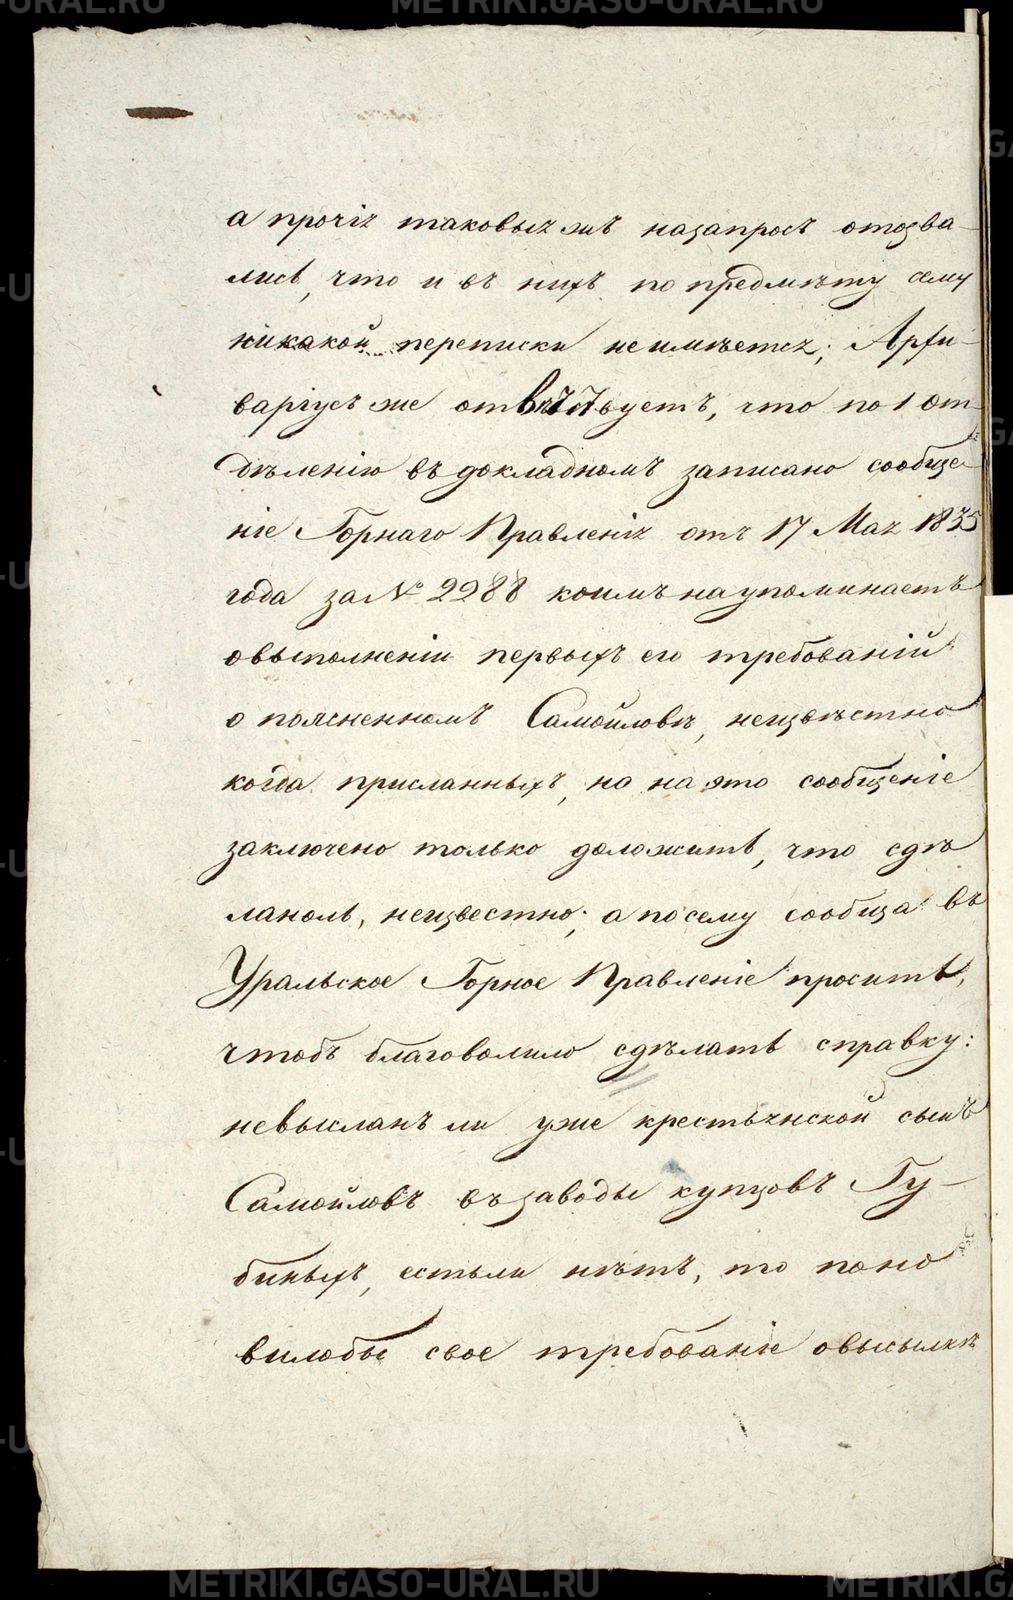 а прочія таковыя жъ на запросъ отозва-
лись, что и въ нихъ по предмѣту сему
никакой переписки не имѣется; Архи-
варіусъ же отвѣтствуетъ, что по 1 от-
дѣленію въ докладномъ записано сообще-
ніе Горнаго Правленія отъ 17 Мая 1835
года за № 2288 коимъ на упоминаетъ
о выполненіи первыхъ его требованій
о поясненномъ Самойловѣ, неизвѣстно
когда присланныхъ, но на это сообщеніе
заключено только доложить, что сдѣ
лано ль, неизвестно; а по сему сообща въ
Уральское Горное Правленіе просить,
чтобъ благоволило сдѣлать справку:
не высланъ ли уже крестьянской сынъ
Самойловъ въ заводы купцовъ Гу-
биныхъ, естьли нѣтъ, то поно
вило бы свое требованіе о высылкѣ
METRIKI.GASO-URAL.RU